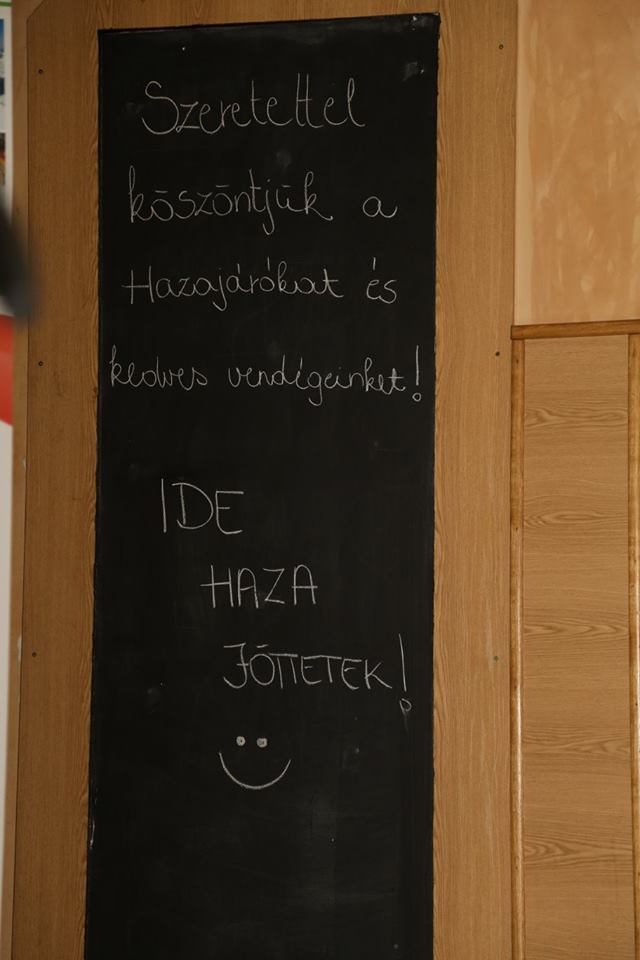 Szeretettel
köszöntjük a
Hazajárókat és
kedves vendégeinket!
IDE
HAZA
JÖTTETEK!